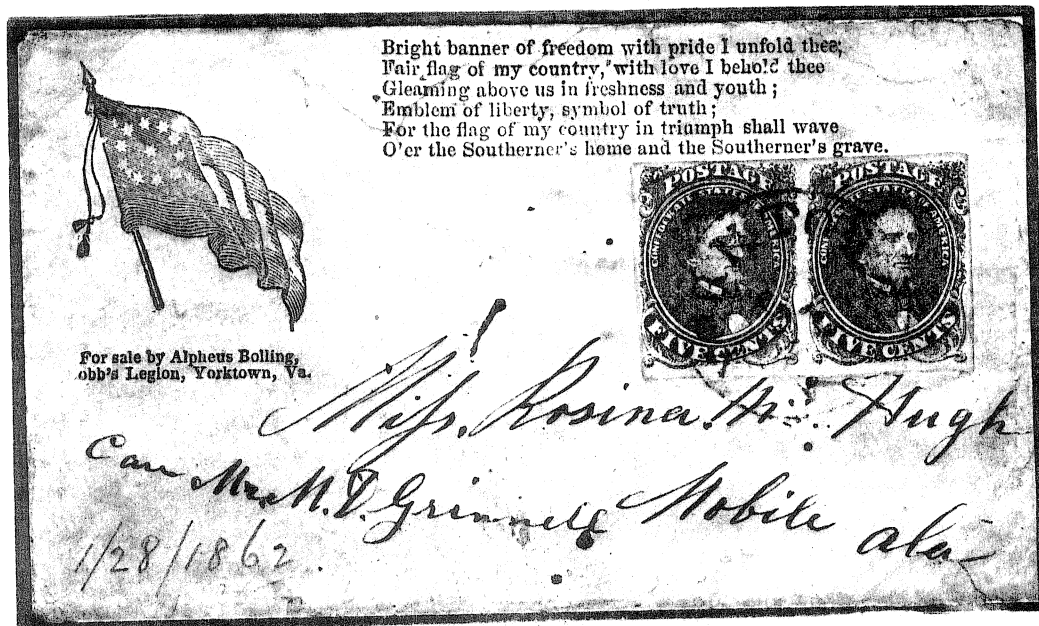 Bright banner of freedom with pride I unfold thee;
Fair flag of my country, with love I behold thee
Gleaming above us in freshness and youth;
Emblem of liberty, symbol of truth;
For the flag of my country in triumph shall wave
O'er the Southerner's home and the Southerner's grave.
POSTAGE
CONFEDERATE STATES OF AMERICA
FIVE CENTS
POSTAGE
CONFEDERATE STATES OF AMERICA
FIVE CENTS
For sale by Alpheus Bolling,
obb's Legion, Yorktown, Va.
Miss. Rosina. Hugh
Care Mr. M. D. Grinnell Mobile
ala
1/28/1862.